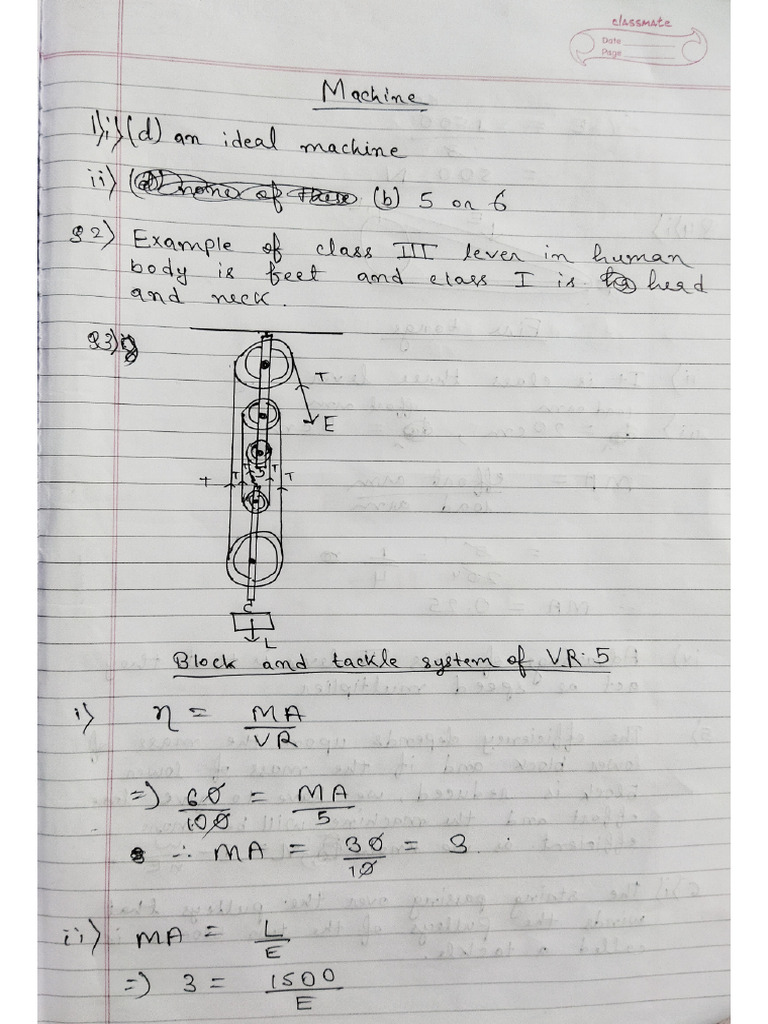 classmate
Date
Page
Machine
1) i) (d) an ideal machine
ii) (b) 5 or 6
Q2) Example of class III lever in human
body is feet and class I is head
and neck.
Q3)
T
E
T T T T T
L
Block and tackle system of V.R. 5
i) η = MA/VR
=) 60/100 = MA/5
∴ MA = 30/10 = 3.
ii) MA = L/E
=) 3 = 1500/E